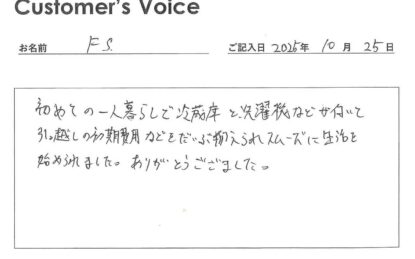 Customer's Voice
お名前 F.S. ご記入日 2025年 10月 25日
初めての一人暮らしで冷蔵庫と洗濯機などが付いて
引っ越しの初期費用などをだいぶ抑えられスムーズに生活を
始められました。ありがとうございました。